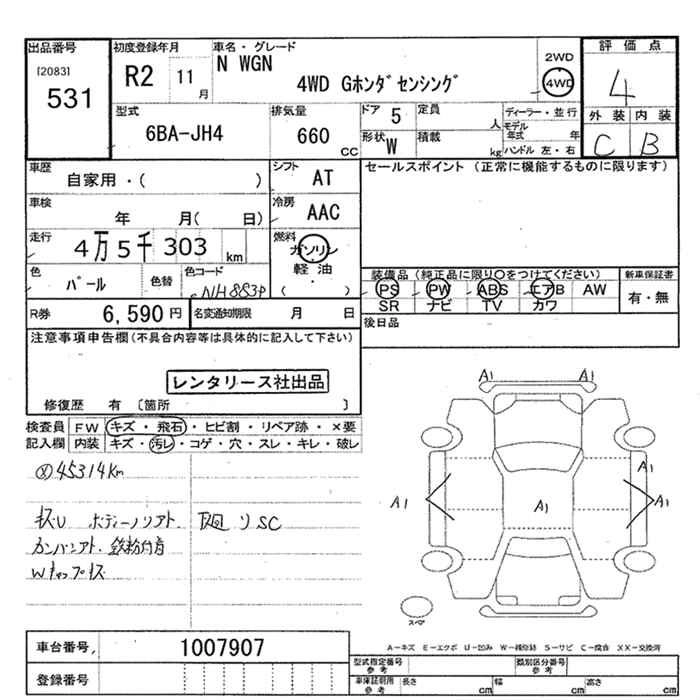 出品番号
[2083]
531
初度登録年月
R2 11月
車名・グレード
N WGN
4WD Gホンダセンシング
2WD
4WD
評価点
4
外装 内装
C B
型式
6BA-JH4
排気量
660 cc
ドア 5
定員 人
形状 W
積載 kg
ディーラー・並行
モデル年式 年
ハンドル 左・右
車歴
自家用・( )
シフト AT
セールスポイント (正常に機能するものに限ります)
車検
年 月( 日)
冷房 AAC
走行
4万5千303 km
燃料
ガソリン
軽油
( ・ )
色
パール
色替
色コード
NH883P
装備品 (純正品に限り○をつけてください)
PS PW ABS エアB AW
SR ナビ TV カワ
新車保証書
有・無
R券 6,590円
名変通知期限 月 日
後日品
注意事項申告欄(不具合内容等は具体的に記入して下さい)
レンタリース社出品
修復歴 有 〔箇所 〕
検査員記入欄
FW キズ・飛石・ヒビ割・リペア跡・×要
内装 キズ・汚レ・コゲ・穴・スレ・キレ・破レ
45314km
廻りSC
A1 A1
A1
A1
A1
A1
スペア
A-キズ E-エクボ U-凹み W-補修跡 S-サビ C-腐食 XX-交換済
車台番号 1007907
登録番号
型式指定番号 参考
類別区分番号 参考
車庫証明用 参考
長さ cm
幅 cm
高さ cm